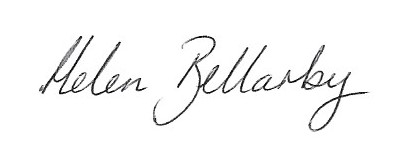 Helen Bellarby